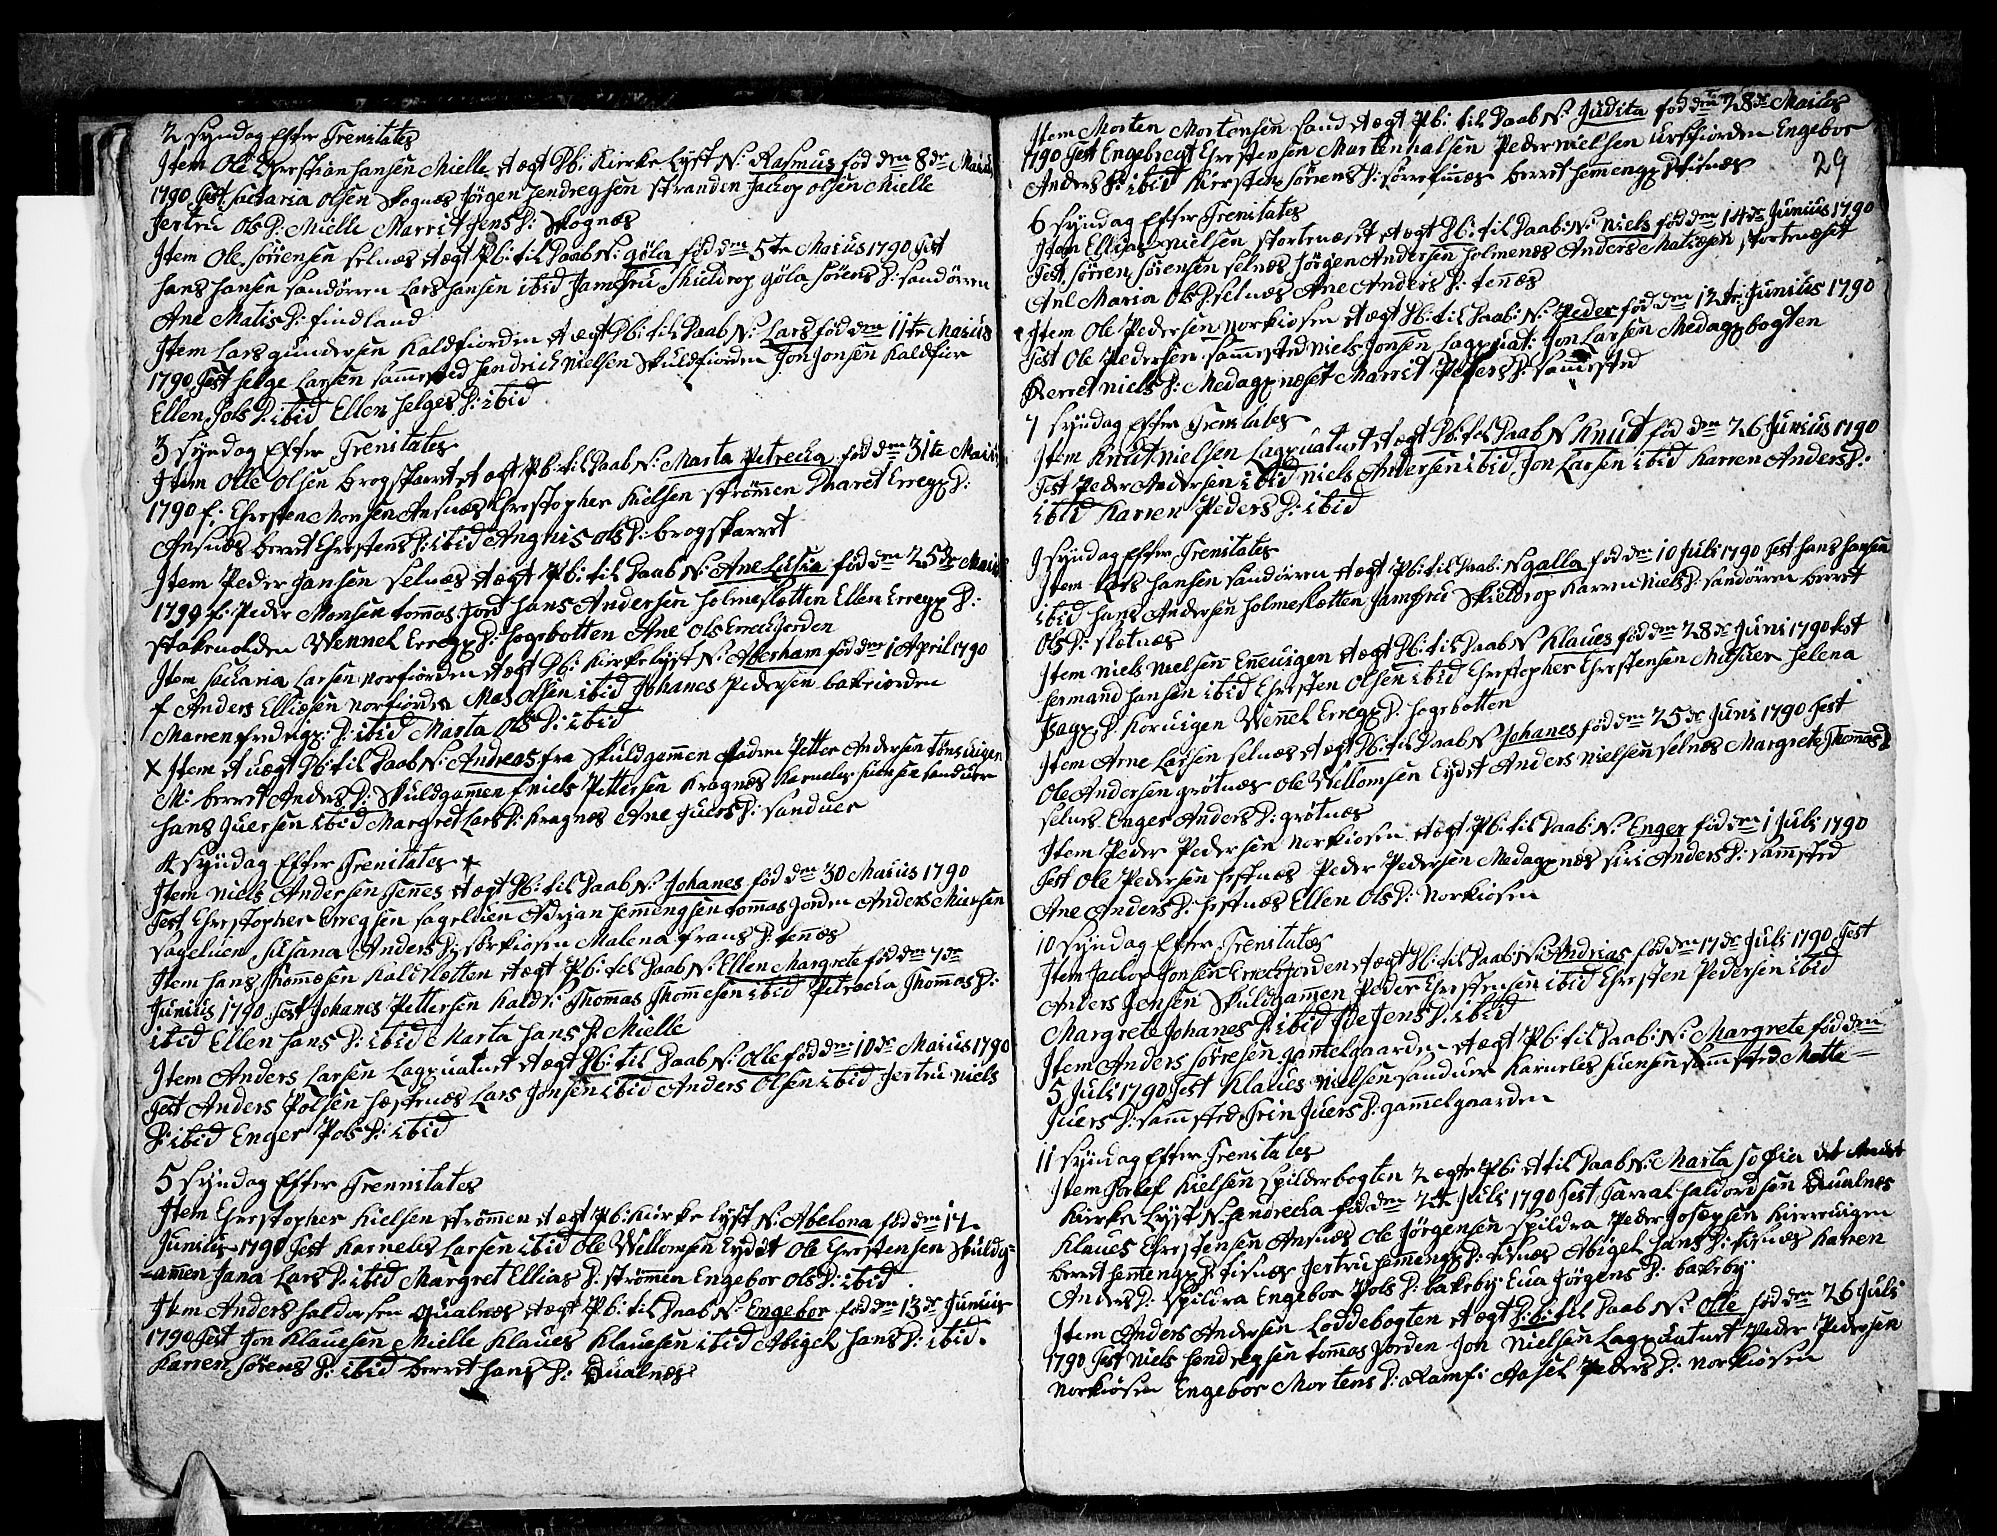 2 Syndag Efter Trenitates
Item Ole Christian Hansen Mielle et ægt Pb: Kirke Lyst N: Rasmus fød den 8de Maius
1790 Test Sackaria Olsen Skognæs Jörgen Hendregsen Stranden Jackop Olsen Mielle
Jertru Ols D: Mielle Marrit Jens D: Skognæs
Item Ole Sörrensen Selnæs et ægt Pb: til Daab N: göla fød den 5te Maius 1790 Test
Hans Hansen Sandörren Lars Hansen ibid Jamfru Skieldrop göla Sörens D: Sandörren
Ane Matis D: Findland
Item Lars gundersen Kaldfiorden et ægt Pb: til Daab N: Lars fød den 11te Maius
1790 Test Helge Larsen Sammested Hendrich Nielsen Skuldfiorden Jon Jonsen Kaldfior
Ellen Jols D: ibid Ellen Helges D: ibid
3 Syndag Efter Trenitates
Item Olle Olsen Brogskarret et ægt Pb: til Daab N: Marta Petrecka fød den 31te Maius
1790 f: Chresten Monsen Ansnæs Chrestopher Kielsen Strömmen Maret Erregx D:
Ansnæs Berret Chrestens D: ibid Angnis Ols D: Brogskarret
Item Peder Jansen Selnæs et ægt Pb: til Daab N: Ane Lusia fød den 25de Maius
1790 f: Peder Monsen Tommas Jord Hans Andersen Holmesletten Ellen Erregx D:
Stakenolden Wennel Erregx D: Hogebotten Ane Ols Erreckjorden
Item Sackaria Larsen Norfiorden et ægt Pb: Kirkelyst N: Aberham fød den 1 April 1790
f Anders Elliæsen Norfiorden Mas Olsen ibid Johanes Pedersen Bakeiorden
Marren Fredrigx D: ibid Marta Ols D: ibid
X Item et uægt Pb: til Daab N: Andreas fra Skuldgammen Faderen Petter Andersen Tönsuigen
M: Berret Anders D: Skuldgammen f Niels Pettersen Kragnæs Karneles Suensen Sanduer
Hans Juersen ibid Margret Lars D: Kragnæs Ane Juers D: Sanduer
4 Syndag Efter Trenitates +
Item Niels Andersen Tenes et ægt Pb: til Daab N: Johanes fød den 30 Maius 1790
Test Chrestopher Erregsen Sageluen Adrian Hemmingsen Tommas Jorden Anders Niersen
Sageluen Susana Anders D: Sörkiosen Malena Frans D: Tennæs
Item Hans Thommæsen Kaldsletten et ægt Pb: til Daab N: Ellen Margrete fød den 7de
Junius 1790 Test Johanes Pettersen Kalds: Thommas Thommesen ibid Petrecka Thommas D:
ibid Ellen Hans D: ibid Marta Hans D: Mielle
Item Anders Larsen Lagxuatnet et ægt Pb: til Daab N: Olle fød den 10de Maius 1790
Test Anders Polsen Hæstenæs Lars Jonsen ibid Anders Olsen ibid Jertru Niels
D: ibid Enger Pols D: ibid
5 Syndag Efter Trennitates
Item Chrestopher Kielsen Strömmen et ægt Pb: Kierke Lyst N: Abelona fød den 14
Junius 1790 Test Karnelis Larsen ibid Ole Wellomsen Eydet Ole Chrestensen Skuldg-
-amen Jana Lars D: ibid Margret Ellias D: Strömmen Engebor Ols D: ibid
Item Anders Haldorsen Qualnæs et ægt Pb: til Daab N: Engebor fød den 13de Junius
1790 Test Jon Klauesen Mielle Klaues Klauesen ibid Abigel Hans D: ibid.
Karren Sörens D: ibid Berret Hans D: Qualnæs
29
Item Morten Mortensen Sand et ægt Pb: til Daab N: Judita fød den 28de Maius
1790 Test Engebregt Chrestensen Mortenhalsen Peder Nielsen Ursfiorden Engebor
Anders D: ibid Kiersten Sörrens D: Sörrefinnæs Berret Hemmengx D Tisnæs
6 Syndag Efter Trenitates
Item Ellias Nielsen Stortenæset et ægt Pb: til Daab: N: Niels fød den 14de Junius 1790
Test Sörren Sörensen Selnæs Jörgen Andersen Holmenæs Anders Matiæsen Stortenæset
Anl Maria Ols D Selnæs Ane Anders D: Tennæs
Item Ole Pedersen Norkiosen et ægt Pb: til Daab: N: Peder fød den 12te Junius 1790
Test Ole Pedersen Sammested Niels Jonsen Lagxuat: Jon Larsen Medagxbogten
Berret Niels D: Medagxnæset Marrit Peders D: Samested
7 Syndag Efter Trenitates
Item Knut Nielsen Lagxuatnet et ægt Pb: til Daab N Knut fød den 26 Junius 1790
Test Peder Andersen ibid Niels Andersen ibid Jon Larsen ibid Karren Anders D:
ibid Karren Peders D: ibid
Syndag Efter Trenitates
Item Lars Hansen Sandörren et ægt Pb: til Daab: N galla fød den 10 Juli 1790 Test Hans Hansen
ibid Hans Andersen Holmesletten Jamfru Skieldrop Karren Niels D: Sandörren Berret
Ols D: Sletnæs
Item Niels Nielsen Enneuigen et ægt Pb: til Daab N Klaues fød den 28de Juni 1790 Test
Hermand Hansen ibid Chresten Olsen ibid Chrestopher Chrestensen Mitsuer Helena
Isagx D: Koruigen Wennel Erregx D: Hogebotten
Item Arne Larsen Selnæs et ægt Pb: til Daab N Johanes fød den 25de Juni 1790 Test
Ole Andersen grötnæs Ole Wellomsen Eydet Anders Nielsen Selnæs Margrete Thommas D
Selnæs Enger Anders D: grötnæs
Item Peder Pedersen Norkiosen et ægt Pb: til Daab: N: Enger fød den 1 Juli 1790
Test Ole Pedersen Hestnæs Peder Pedersen Medagxnæs Siri Anders D: Sammested
Ane Anders D: Hestnæs Ellen Ols D: Norkiosen
10 Syndag Efter Trenitates
Item Jackop Jonsen Erreckjorden et ægt Pb: til Daab: N: Andrias fød den 17de Juli 1790 Test
Anders Jensen Skuldgammen Peder Chrestensen ibid Chresten Pedersen ibid
Margrete Johanes D: ibid Ide Jens D: ibid
Item Anders Sörresen gamelgaarden et ægt Pb: til Daab: N: Margrete fød den
5 Juli 1790 Test Klaues Nielsen Sanduer Karneles Suensen Sammested Mette
Juers D: Sammested Trin Juers D: gammelgaarden
11 Syndag Efter Trenitates
Item Torlef Kielsen Spilderbogten 2 ægte Pb: et til Daab N: Marta Sofia det Andet
Kierke Lyst N: Hendrecka fød den 24 Juli 1790 Test Tarral Haldordsen Qualnes
Klaues Chrestensen Ansnæs Ole Jörgensen Spildra Peder Josæpsen Kierreuigen
Berret Hemengx D: Tisnæs Jertru Hemmengx D: Tisnæs Abigel Hans D: Tisnæs Karren
Anders D: Spildra Engebor Pols D: Bakeby: Eua Jörgens D: Bakeby
Item Anders Andersen Loddebogten et ægt Pb: til Daab N: Olle fød den 26 Juli
1790 Test Niels Hendregsen Tommas Jorden Jon Nielsen Lagxuatnet Peder Pedersen
Norkiosen Engebor Mortens D: Ramf: Aasel Peders D: Norkiosen